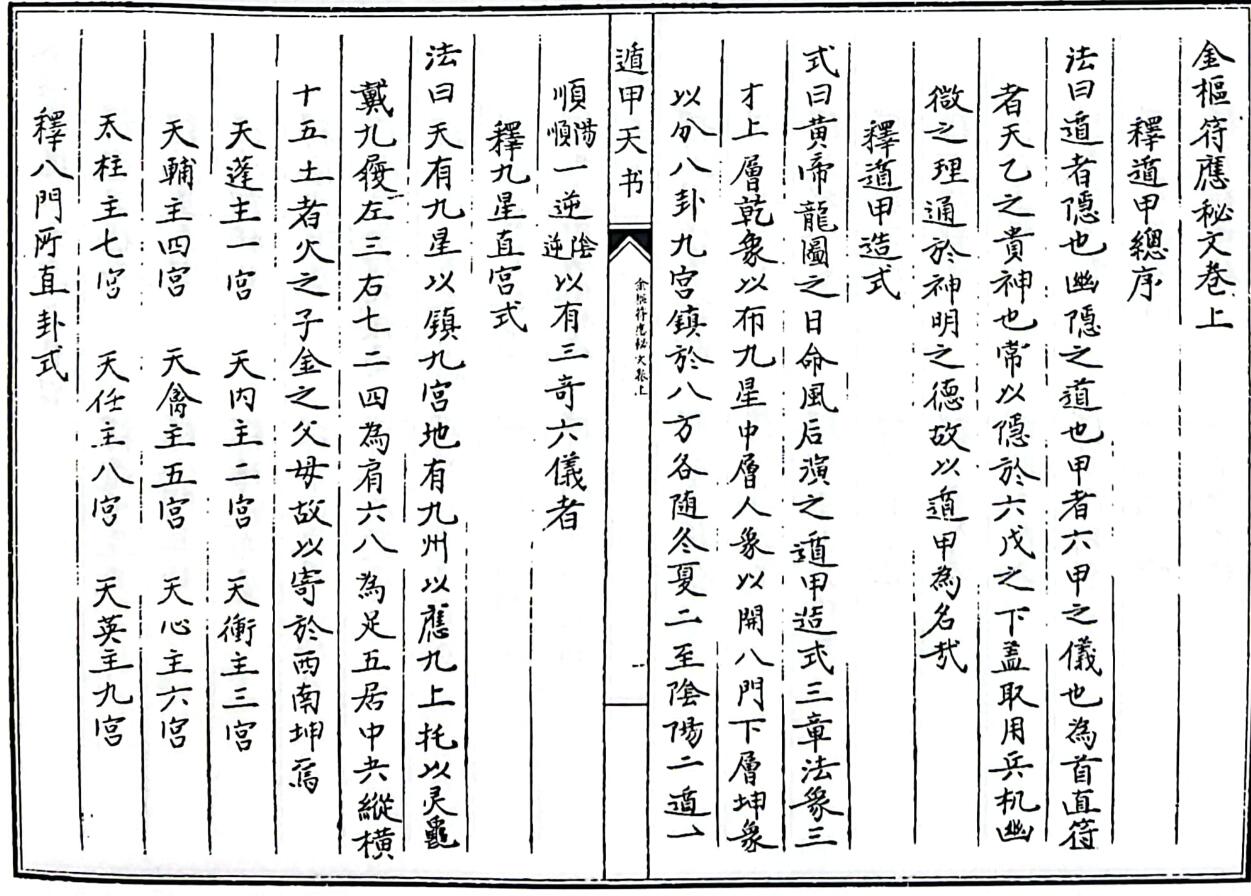 金樞符應秘文卷上
釋遁甲總序
法曰遁者隱也幽隱之道也甲者六甲之儀也為首直符
者天乙之貴神也常以隱於六戊之下盖取用兵机幽
微之理通於神明之德故以遁甲為名哉
釋遁甲造式
式曰黄帝龍圖之日命風后演之遁甲造式三章法象三
才上層乾象以布九星中層人象以開八門下層坤象
以分八卦九宮鎮於八方各随冬夏二至陰陽二遁一
遁甲天书
金樞符應秘文卷上
一
順陽順一逆陰逆以有三奇六儀者
釋九星直宮式
法曰天有九星以鎮九宮地有九州以應九上托以灵龜
戴九履左三右七二四為肩六八為足五居中央縱橫
十五土者火之子金之父母故以寄於西南坤焉
天蓬主一宮 天内主二宮 天衝主三宮
天輔主四宮 天禽主五宮 天心主六宮
天柱主七宮 天任主八宮 天英主九宮
釋八門所直卦式